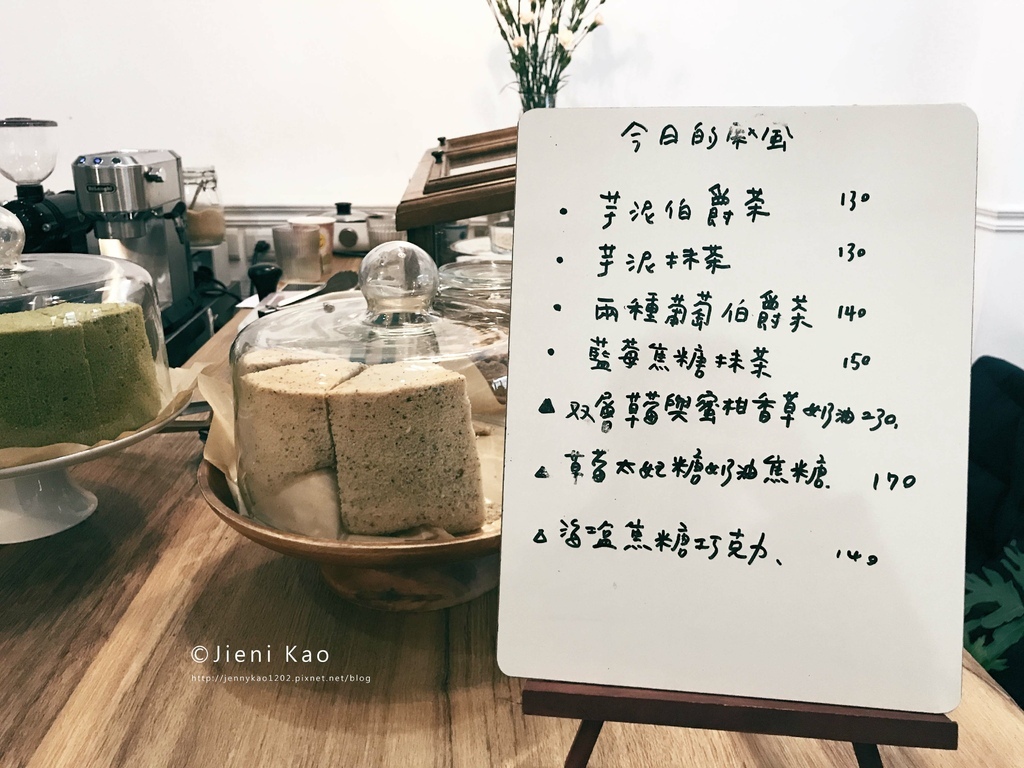 今日的戚風
• 芋泥伯爵茶 130
• 芋泥抹茶 130
• 兩種葡萄伯爵茶 140
• 藍莓焦糖抹茶 150
▲ 双層草莓與蜜柑香草奶油 230.
△ 草莓太妃糖奶油焦糖. 170
△ 海塩焦糖巧克力、 140
©Jieni Kao
http://jennykao1202.pixnet.net/blog